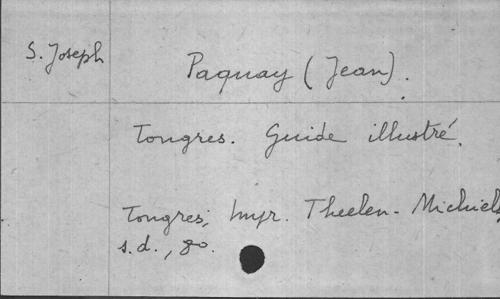 S. Joseph
Paquay (Jean).
Tongres. Guide illustré.
Tongres; Impr. Theelen-Michiels,
s.d., 8o.